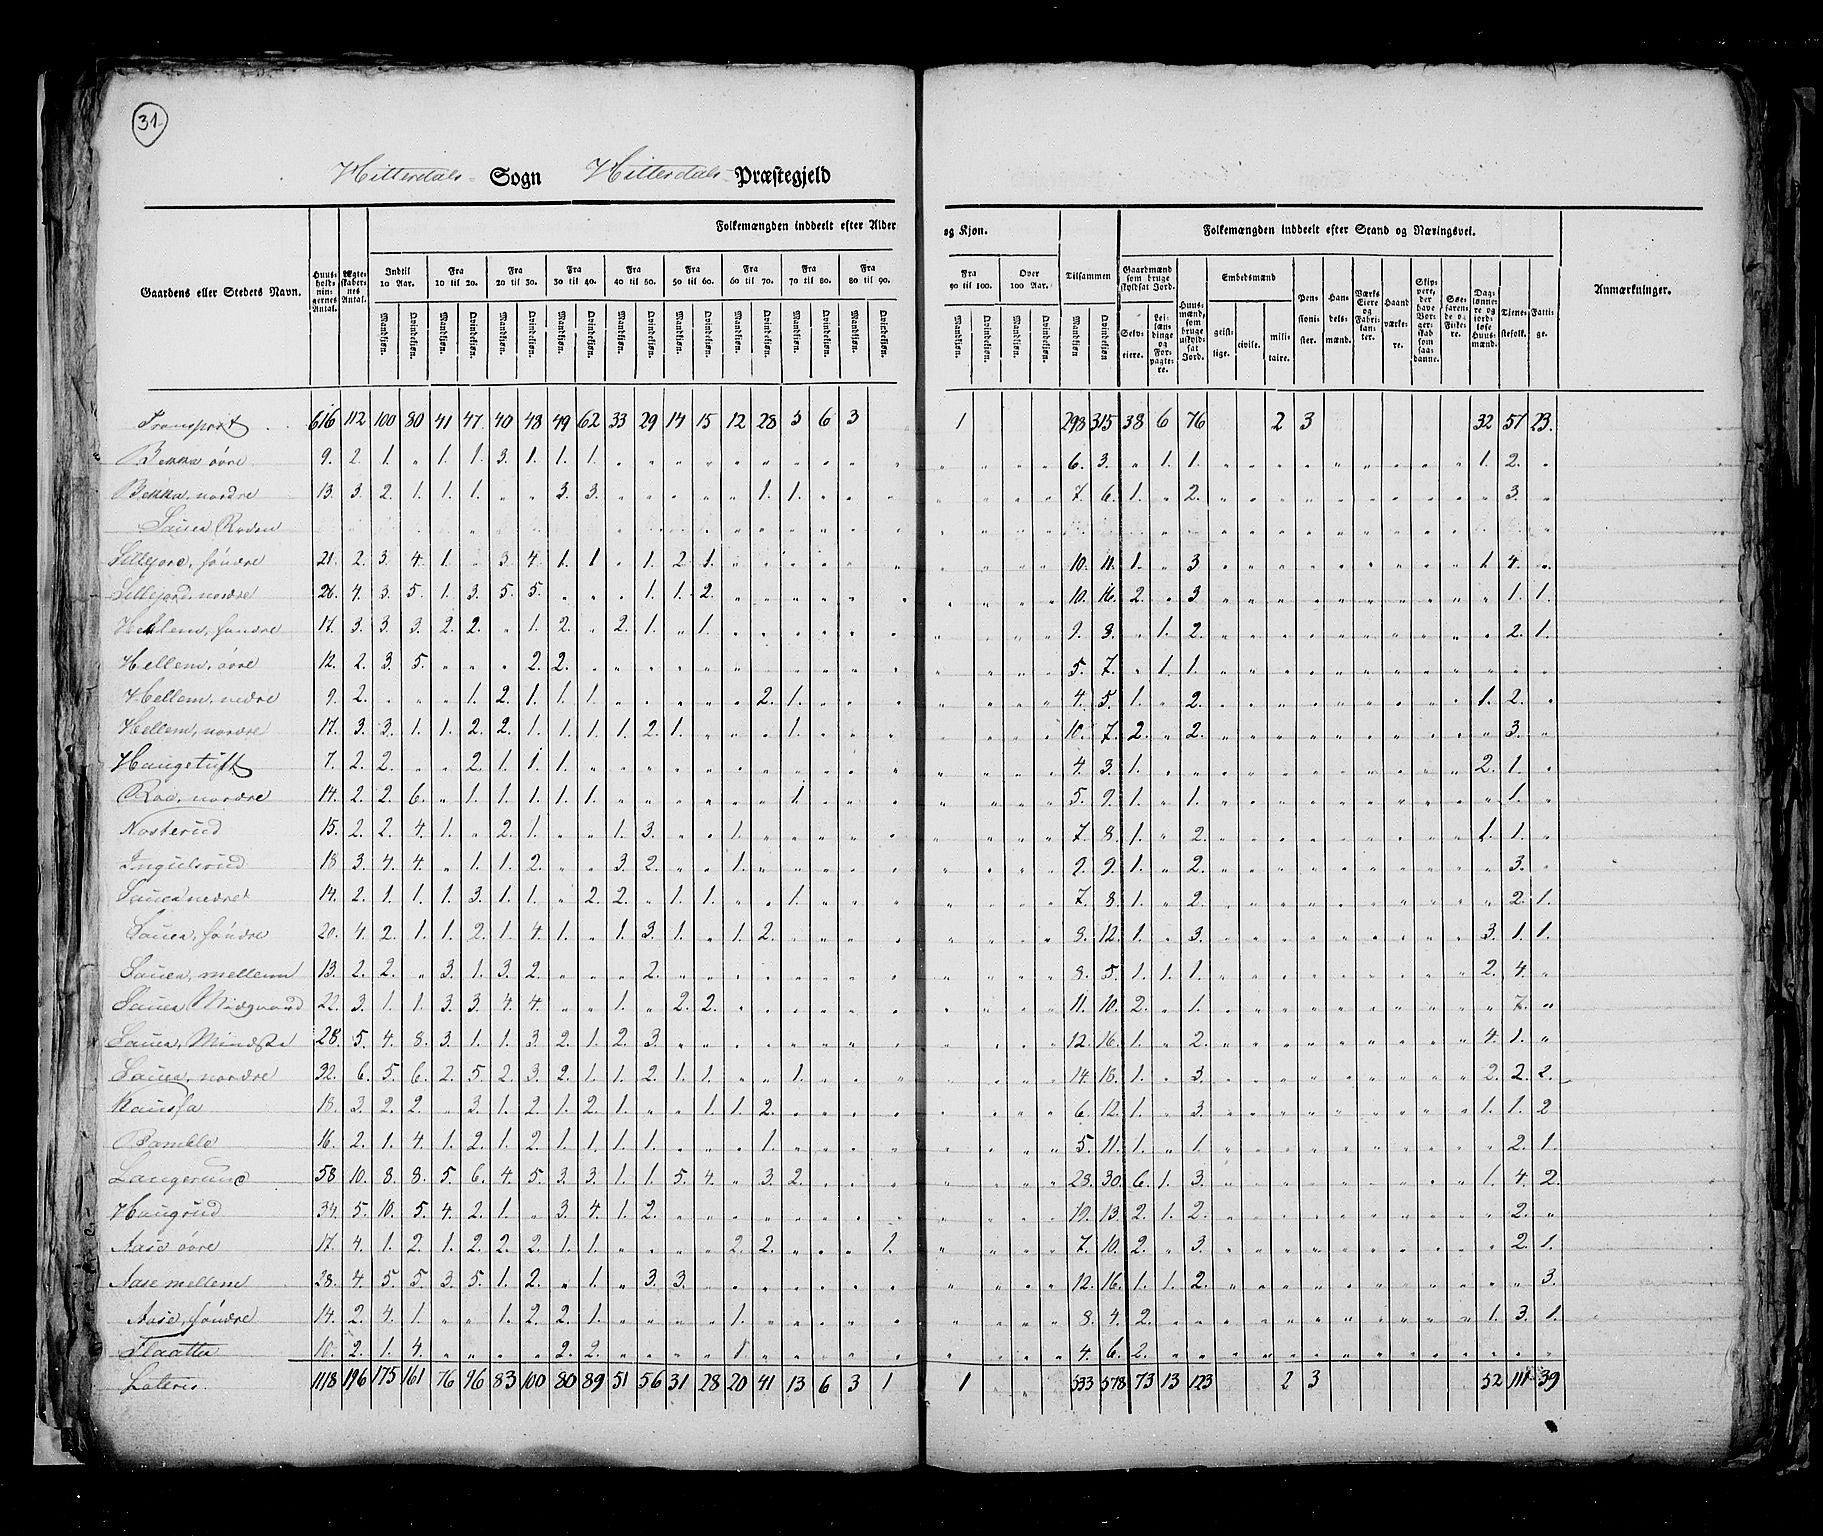 31
Hitterdals Sogn Hitterdals Præstegjeld
Gaardens eller Stedets Navn. Huusholdningernes Antal. Ægteskabernes Antal. Folkemængden inddeelt efter Alder og Kjøn. Tilsammen Folkemængden inddeelt efter Stand og Næringsvei. Anmærkninger.
Indtil 10 Aar. Fra 10 til 20. Fra 20 til 30. Fra 30 til 40. Fra 40 til 50. Fra 50 til 60. Fra 60 til 70. Fra 70 til 80. Fra 80 til 90. Fra 90 til 100. Over 100 Aar.
Gaardmænd som bruge skyldsat Jord. Selveiere. Leilændinge og Forpagtere. Huusmænd, som bruge uskyldsat Jord. Embedsmænd geistlige. civile. militaire. Pensionister. Handelsmænd. Værks Eiere og Fabrikanter. Haandværkere. Skippere, der have Borgerskab som saadanne. Søefarende og Fiskere. Daglønnere og jordløse Huusmænd. Tjenestefolk. Fattige.
Mandkjøn. Qvindekjøn.
Transport 616 112 100 80 41 47 40 48 49 62 33 29 14 15 12 28 5 6 3 1 298 315 38 6 76 2 3 32 57 23.
Bekka øvre 9. 2. 1. „ 1. 1. 3. 1. 1. 1. 6. 3. „ 1. 1. 1. 2. „
Bekka, nordre 13. 3. 2. 1. 1. 1. „ „ 3. 3. 1. 1. 7. 6. 1. „ 2. 3. „
Sauea Roden
Lillejord, søndre 21. 2. 3. 4. 1. „ 3. 4. 1. 1 „ 1. 2. 1. 10. 11. 1. „ 3 1. 4. „
Lillejord, nordre 26. 4. 3. 5. 1. 3. 5. 5. 1. 1. 2. 10. 16. 2. „ 3. 1. 1.
Hellem, søndre 17. 3. 3. 3. 2. 2. „ 1. 2. „ 2. 1. „ 1. 9. 8. „ 1. 2. 2. 1.
Hellem, øvre 12. 2. 3. 5. „ „ „ 2. 2. 5. 7. „ 1. 1.
Hellem, nedre 9. 2. „ „ „ 1. 2. 1. 1. 1. 2. 1. 4. 5. 1. „ 2. 1. 2. „
Hellem, nordre 17. 3. 3. 1. 1. 2. 2. 1. 1. 1. 1. 2. 1. 1. 10. 7. 2. „ 2. „ 3. „
Haugetuft 7. 2. 2. „ „ 2. 1. 1. 1. 4. 3. 1. 2. 1. „
Roe, nordre 14. 2. 2. 6. „ 1. 1. 1. 1. 1. 1. 5. 9. 1. „ 1. „ 1. „
Nosterud 15. 2. 2. 4. 1. „ 2. 1. „ „ 1. 3. „ „ 1. 7. 8. 1. „ 2. 1. 1. „
Ingulsrud 18 3. 4. 4. „ 1. 1. 2. „ „ 3. 2. „ „ 1. 9. 9. 1. „ 2. „ 3. „
Sauea nedre 14. 2. 1. 1. 1. 3. 1. 1. „ 2. 2. „ 1. 1. „ „ 1. 7. 8. 1. „ 2. „ 2. 1.
Sauea, søndre 20. 4. 2. 1. 1. 2. 1. 4. 1. „ 1. 3. 1. „ 1. 2. 8. 12. 1. „ 3. 3. 1. 1.
Sauea, mellem 13. 2. 2. „ 3. 1. 3. 2. „ „ „ 2. 8. 5. 1. 1. 1. 2. 4. „
Sauea Midgaard 22. 3. 1. 1. 3. 3. 4. 4. „ „ 1. „ 2. 2. 11. 10. 2. „ 1. „ 7. „
Sauea, Mindste 28. 5. 4. 8. 3. 1. 1. 3. 2. 1. 2. 3. 12. 16. 1. „ 2. 4. 1. „
Sauea, nordre 32. 6. 5. 6. 2. 5. 2. 3. 2. 1. 1. 2. 1. 1. „ „ 1. 14. 18. 1. „ 3. 2. 2. 2.
Kaasa 18. 3. 2. 2. „ 3. 1. 2. 1. 2. 1. „ „ 1. 1. 2. 6. 12. 1. „ 3. 1. 1. 2
Bamble 16. 2. 1. 4. 1. 2. 1. 2. 1. 1. 1. 1. „ „ „ 1. 5. 11. 1. „ 1. „ 2. 1.
Langerud 58 10. 8. 8. 5. 6. 4. 5. 3. 3. 1. 1. 5. 4. „ 3. 2. 28. 30. 6. 1. 3. 1. 4. 2.
Haugrud 34. 5. 10. 5. 4. 2. 1. „ 3. 4. 1. 2. 19. 13. 2. 1. 2. „ 2. „
Aase øvre 17. 4. 1. 2. 1. 2. 2. 2. 1. 1. 2. 2. 1. 7. 10. 2. „ 3. „ 2. 1.
Aase mellem 28. 4. 5. 5. 3. 5. 1. 2. „ 1. „ 3. 3. 12. 16. 1. 1. 2. „ „ 3.
Aase, søndre 14. 2. 4. 1. „ „ 1. 2. 2. 1. 1. 8. 4. 2. 1. 3. 1.
Flaatta 10. 2. 1. 4. „ „ „ „ 2. 2. 1. 4. 6. 2.
Lateris. 1118 196 175 161 76 96 83 100 80 89 51 56 31 28 20 41 13 6 3 1 1 533 578 73 13 123 2 3 52 111 39